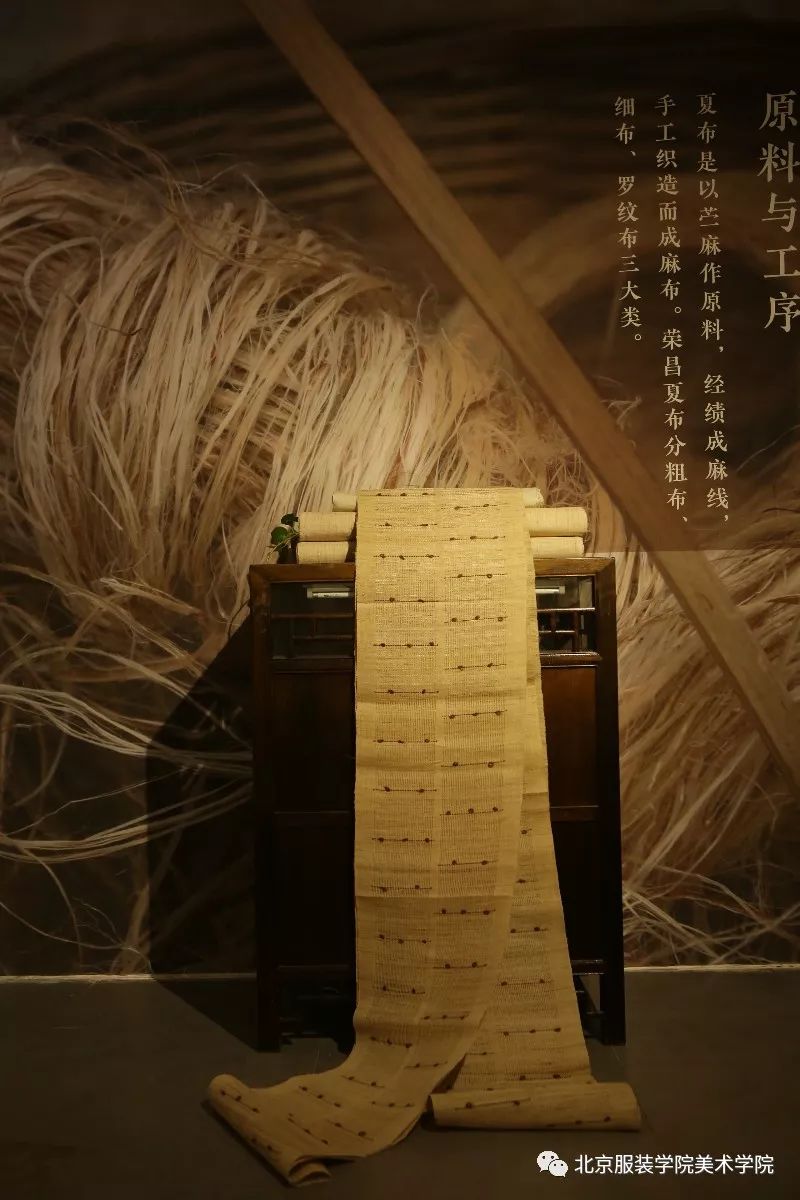 原料与工序
夏布是以苎麻作原料，经绩成麻线，
手工织造而成麻布。荣昌夏布分粗布、
细布、罗纹布三大类。
北京服装学院美术学院